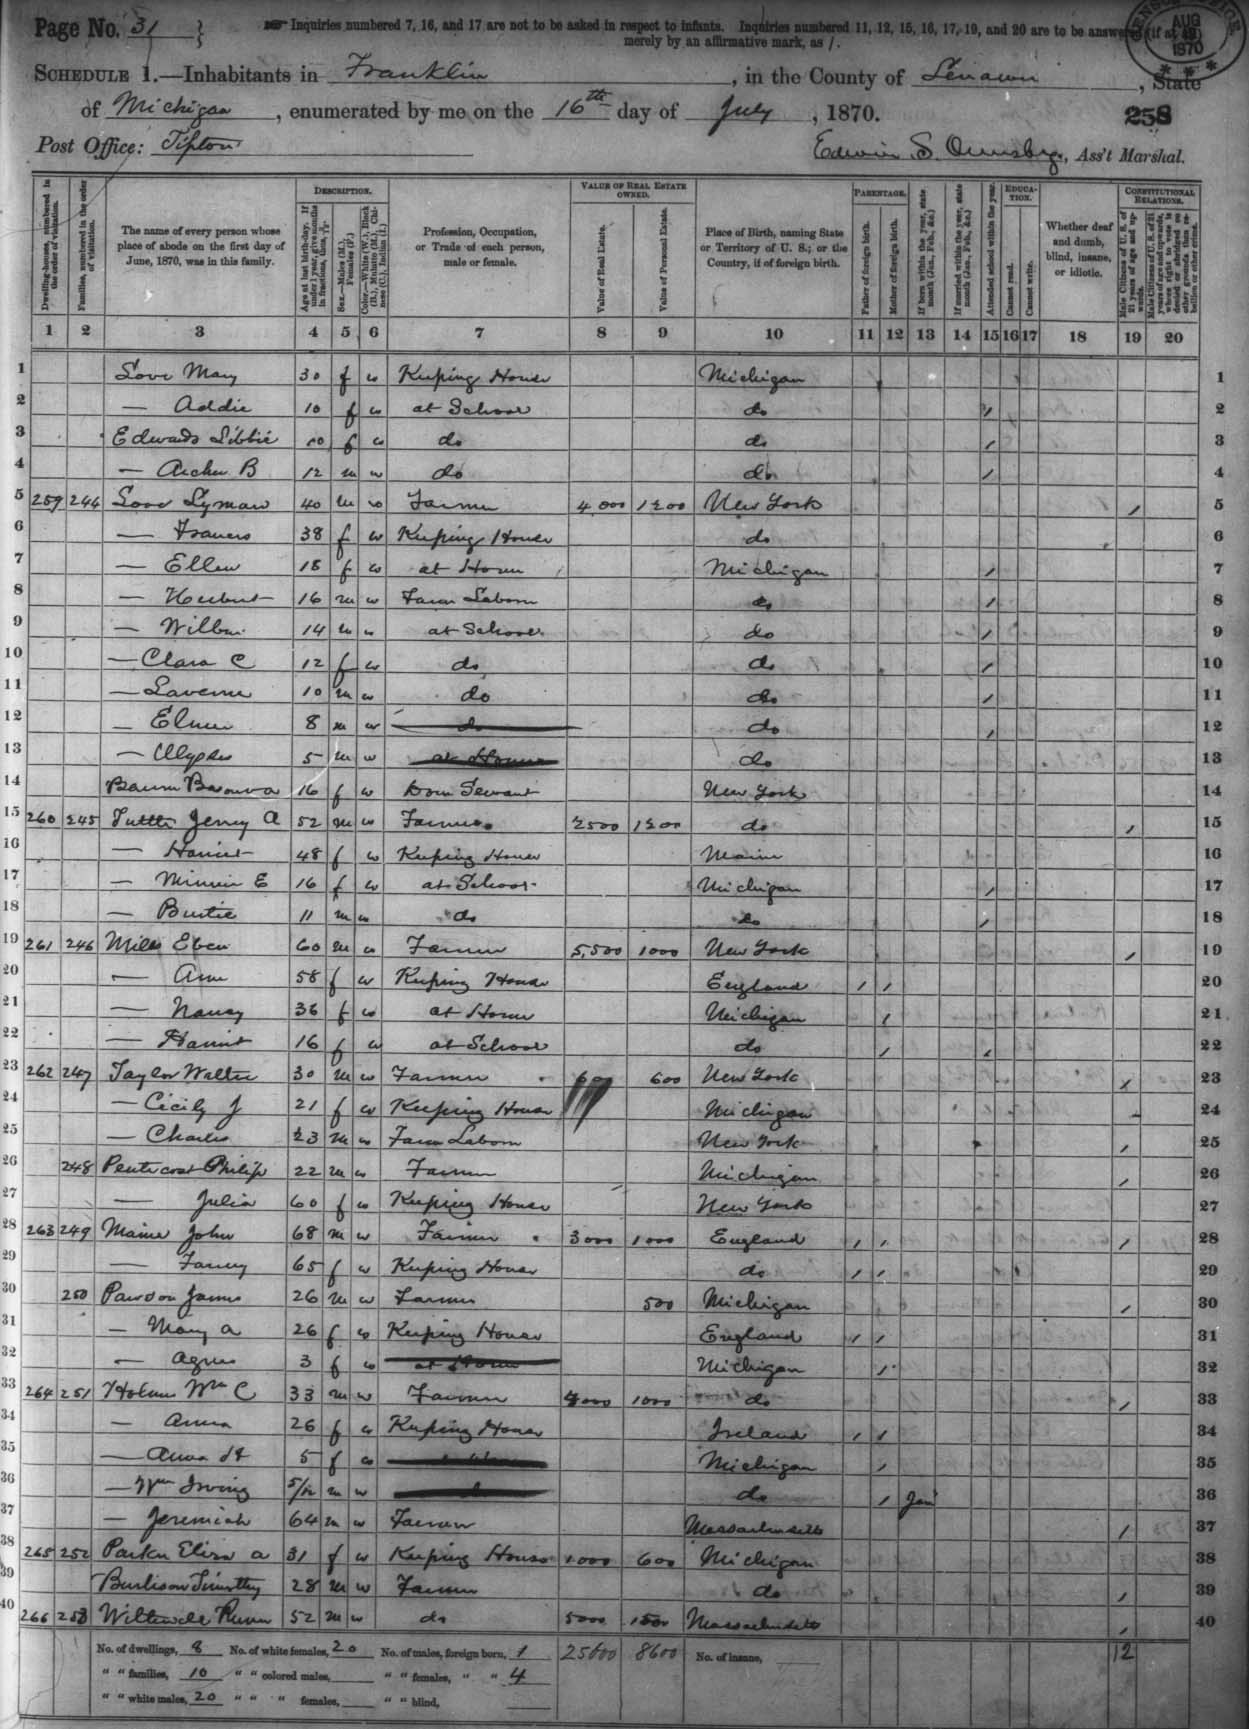 Page No. 31
Inquiries numbered 7, 16, and 17 are not to be asked in respect to infants. Inquiries numbered 11, 12, 15, 16, 17, 19, and 20 are to be answered (if at all)
merely by an affirmative mark, as /.
CENSUS OFFICE AUG 1870
SCHEDULE 1.—Inhabitants in Franklin, in the County of Lenawee, State
of Michigan, enumerated by me on the 16th day of July, 1870.
258
Post Office: Tipton
Edwin S. Ormsby, Ass't Marshal.
Dwelling-houses, numbered in the order of visitation.
Families, numbered in the order of visitation.
The name of every person whose place of abode on the first day of June, 1870, was in this family.
DESCRIPTION.
Age at last birth-day. If under 1 year, give months in fractions, thus, 3/12
Sex.—Males (M.), Females (F.)
Color.—White (W.), Black (B.), Mulatto (M.), Chinese (C.), Indian (I.)
Profession, Occupation, or Trade of each person, male or female.
VALUE OF REAL ESTATE OWNED.
Value of Real Estate.
Value of Personal Estate.
Place of Birth, naming State or Territory of U. S.; or the Country, if of foreign birth.
PARENTAGE.
Father of foreign birth.
Mother of foreign birth.
If born within the year, state month (Jan., Feb., &c.)
If married within the year, state month (Jan., Feb., &c.)
Attended school within the year.
EDUCATION.
Cannot read.
Cannot write.
Whether deaf and dumb, blind, insane, or idiotic.
CONSTITUTIONAL RELATIONS.
Male Citizens of U. S. of 21 years of age and upwards.
Male Citizens of U. S. of 21 years of age and upwards, whose right to vote is denied or abridged on other grounds than rebellion or other crime.
1 2 3 4 5 6 7 8 9 10 11 12 13 14 15 16 17 18 19 20
1 Love Mary 30 f w Keeping House Michigan 1
2 — Addie 10 f w at School do / 2
3 Edwards Libbie 10 f w do do / 3
4 — Archer B 12 m w do do / 4
5 259 244 Love Lyman 40 m w Farmer 4000 1200 New York / 5
6 — Frances 38 f w Keeping House do 6
7 — Ellen 18 f w at Home Michigan / 7
8 — Herbert 16 m w Farm Labour do / 8
9 — Wilbur 14 m w at School do / 9
10 — Clara C 12 f w do do / 10
11 — Laverne 10 m w do do / 11
12 — Elmer 8 m w do do / 12
13 — Ulysses 5 m w at Home do 13
14 16 f w Dom Servant New York 14
15 260 245 Tuttle Jerry A 52 m w Farmer 2500 1200 do / 15
16 — Harriet 48 f w Keeping House Maine 16
17 — Minnie E 16 f w at School Michigan / 17
18 — Burtie 11 m w do do / 18
19 261 246 Mills Eben 60 m w Farmer 5,500 1000 New York / 19
20 — Ann 58 f w Keeping House England / / 20
21 — Nancy 36 f w at Home Michigan / 21
22 — Harriet 16 f w at School do / / 22
23 262 247 Taylor Walter 30 m w Farmer 600 New York / 23
24 — Cicily J 21 f w Keeping House Michigan 24
25 — Charles 23 m w Farm Labour New York / 25
26 248 Pentecost Philip 22 m w Farmer Michigan / 26
27 — Julia 60 f w Keeping House New York 27
28 263 249 Maine John 68 m w Farmer 3000 1000 England / / / 28
29 — Fanny 65 f w Keeping House do / / 29
30 250 Pawson James 26 m w Farmer 500 Michigan / 30
31 — Mary A 26 f w Keeping House England / / 31
32 — Agnes 3 f w at Home Michigan / 32
33 264 251 Holmes Wm C 33 m w Farmer 4000 1000 do / 33
34 — Anna 26 f w Keeping House Ireland / / 34
35 — Anna H 5 f w Michigan / 35
36 — Wm Irving 5/12 m w do / Jan 36
37 — Jeremiah 64 m w Farmer Massachusetts / 37
38 265 252 Parker Eliza A 31 f w Keeping House 1000 600 Michigan 38
39 Burlison Timothy 28 m w Farmer do / 39
40 266 253 52 m w do 5000 1500 Massachusetts / 40
No. of dwellings, 8 No. of white females, 20 No. of males, foreign born, 1 25600 8600 No. of insane, 12
" " families, 10 " " colored males, " " females, " " 4
" " white males, 20 " " " females, " " blind,